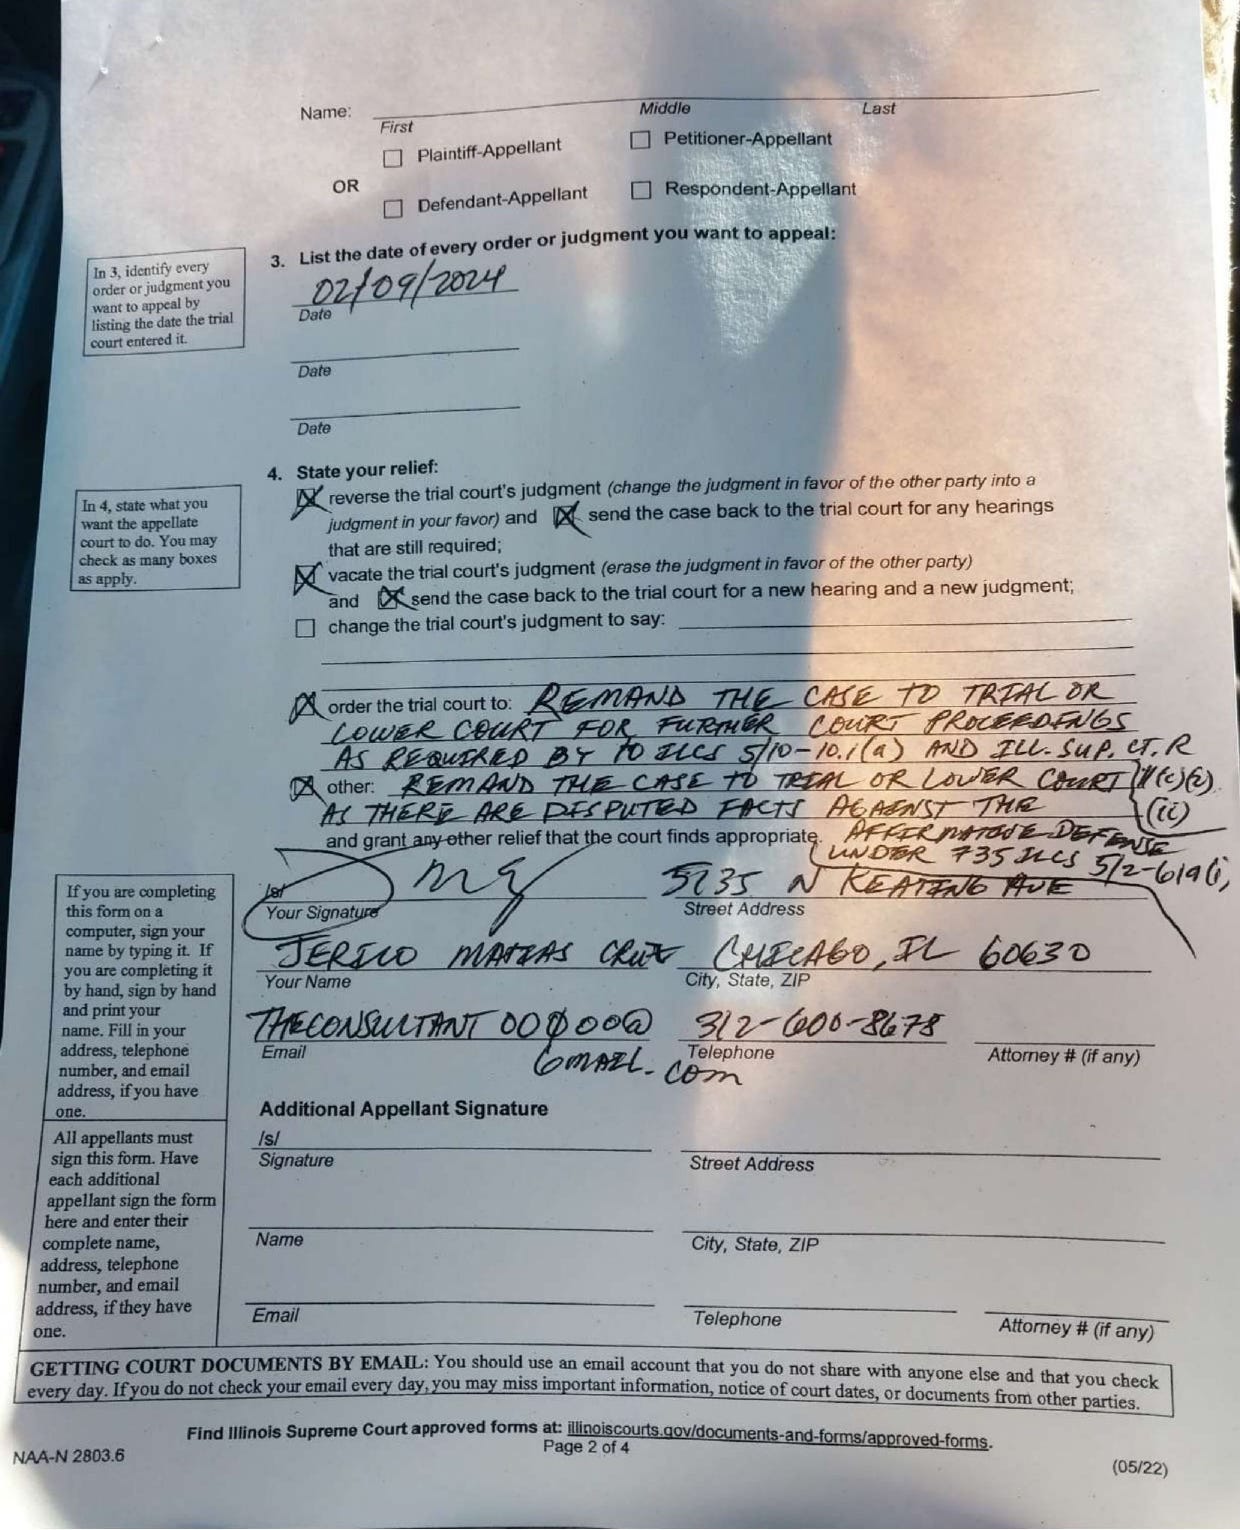 Name:
First Middle Last
Plaintiff-Appellant Petitioner-Appellant
OR
Defendant-Appellant Respondent-Appellant
In 3, identify every
order or judgment you
want to appeal by
listing the date the trial
court entered it.
3. List the date of every order or judgment you want to appeal:
02/09/2024
Date
Date
Date
In 4, state what you
want the appellate
court to do. You may
check as many boxes
as apply.
4. State your relief:
reverse the trial court's judgment (change the judgment in favor of the other party into a
judgment in your favor) and send the case back to the trial court for any hearings
that are still required;
vacate the trial court's judgment (erase the judgment in favor of the other party)
and send the case back to the trial court for a new hearing and a new judgment;
change the trial court's judgment to say:
order the trial court to: REMAND THE CASE TO TRIAL OR
LOWER COURT FOR FURTHER COURT PROCEEDINGS
AS REQUIRED BY 10 ILCS 5/10-10.1(a) AND ILL. SUP. CT. R
other: REMAND THE CASE TO TRIAL OR LOWER COURT
AS THERE ARE DISPUTED FACTS AGAINST THE (ii)
and grant any other relief that the court finds appropriate. AFFIRMATIVE DEFENSE
UNDER 735 ILCS 5/2-619(i)
If you are completing
this form on a
computer, sign your
name by typing it. If
you are completing it
by hand, sign by hand
and print your
name. Fill in your
address, telephone
number, and email
address, if you have
one.
/s/ 5235 N KEATING AVE
Your Signature Street Address
JERICO MATIAS CRUZ CHICAGO, IL 60630
Your Name City, State, ZIP
THECONSULTANT00000@ 312-600-8678
Email Telephone Attorney # (if any)
GMAIL.COM
All appellants must
sign this form. Have
each additional
appellant sign the form
here and enter their
complete name,
address, telephone
number, and email
address, if they have
one.
Additional Appellant Signature
/s/
Signature Street Address
Name City, State, ZIP
Email Telephone Attorney # (if any)
GETTING COURT DOCUMENTS BY EMAIL: You should use an email account that you do not share with anyone else and that you check
every day. If you do not check your email every day, you may miss important information, notice of court dates, or documents from other parties.
Find Illinois Supreme Court approved forms at: illinoiscourts.gov/documents-and-forms/approved-forms.
NAA-N 2803.6 Page 2 of 4 (05/22)